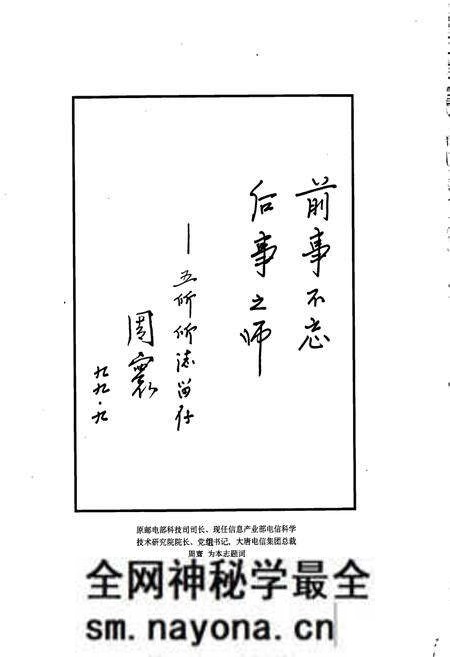 前事不忘
后事之师
—五所所志留存
周寰
九九.九
原邮电部科技司司长、现任信息产业部电信科学
技术研究院院长、党组书记,大唐电信集团总裁
周寰 为本志题词
全网神秘学最全
sm.nayona.cn